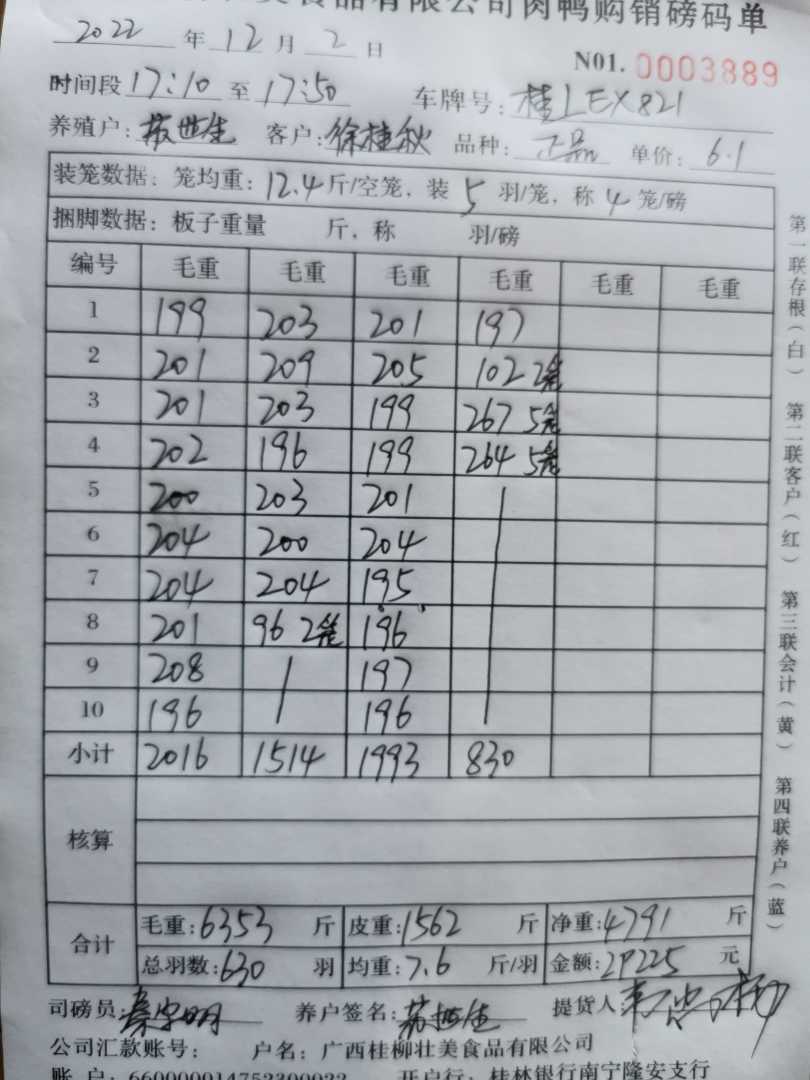 美食品有限公司肉鸭购销磅码单
2022 年 12 月 2 日
N01. 0003889
时间段 17:10 至 17:50 车牌号: 桂LEX821
养殖户: 苏世生 客户: 徐桂秋 品种: 正品 单价: 6.1
装笼数据: 笼均重: 12.4 斤/空笼, 装 5 羽/笼, 称 4 笼/磅
捆脚数据: 板子重量 斤, 称 羽/磅
编号 毛重 毛重 毛重 毛重 毛重 毛重
1 199 203 201 197
2 201 209 205 102 2笼
3 201 203 199 267 5笼
4 202 196 199 264 5笼
5 200 203 201
6 204 200 204
7 204 204 195
8 201 96 2笼 196
9 208 197
10 196 196
小计 2016 1514 1993 830
核算
合计 毛重: 6353 斤 皮重: 1562 斤 净重: 4791 斤
总羽数: 630 羽 均重: 7.6 斤/羽 金额: 29225 元
司磅员: 秦宇明 养户签名: 苏世生 提货人
公司汇款账号: 户名: 广西桂柳壮美食品有限公司
账 户: 660000014752300022 开户行: 桂林银行南宁隆安支行
第一联存根(白) 第二联客户(红) 第三联会计(黄) 第四联养户(蓝)